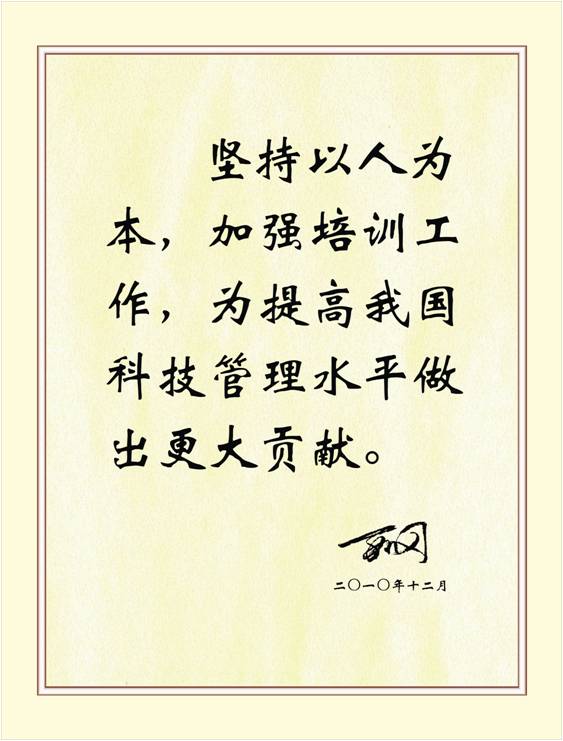 坚持以人为
本，加强培训工
作，为提高我国
科技管理水平做
出更大贡献。
二〇一〇年十二月